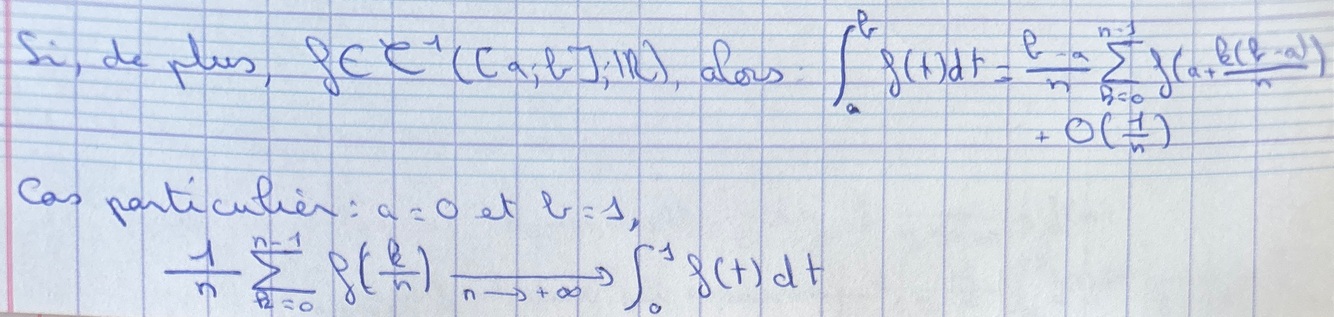 Si, de plus, f ∈ C¹([a;b];ℝ), alors: ∫_a^b f(t)dt = (b-a)/n ∑_{k=0}^{n-1} f(a + k(b-a)/n)
+ O(1/n)
Cas particulier: a = 0 et b = 1,
1/n ∑_{k=0}^{n-1} f(k/n) ⟶_{n→+∞} ∫_0^1 f(t)dt